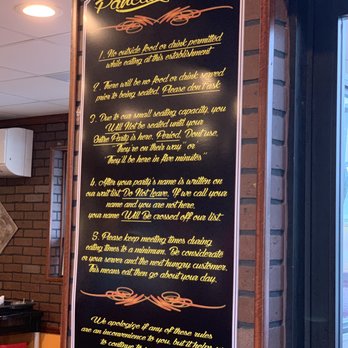 1. No outside food or drink permitted
while eating at this establishment
2. There will be no food or drink served
prior to being seated. Please don't ask
3. Due to our small seating capacity, you
Will Not be seated until your
Entire Party is here. Period. Dont use,
"They're on their way" or
"They'll be here in five minutes"
4. After your party's name is written on
our wait list Do Not Leave. If we call your
name and you are not here,
your name Will Be crossed off our list.
5. Please keep meeting times during
eating times to a minimum. Be considerate
of your server and the next hungry customer.
This means eat then go about your day.
We apologize if any of these rules
are an inconvenience to you, but it helps us
to continue to